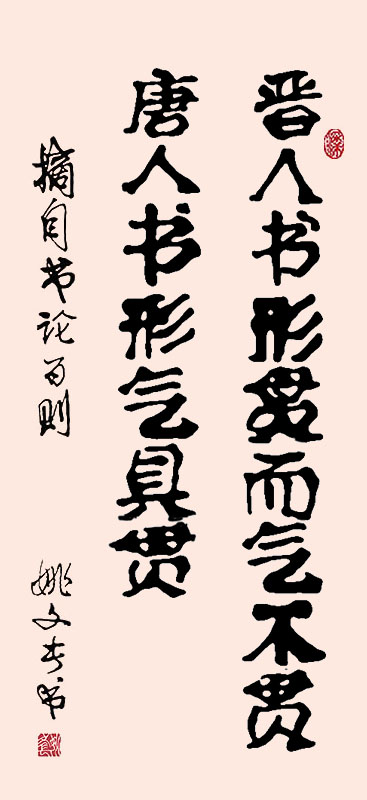 晋人书形贯而气不贯
唐人书形气具贯
摘自书论百则
姚文书